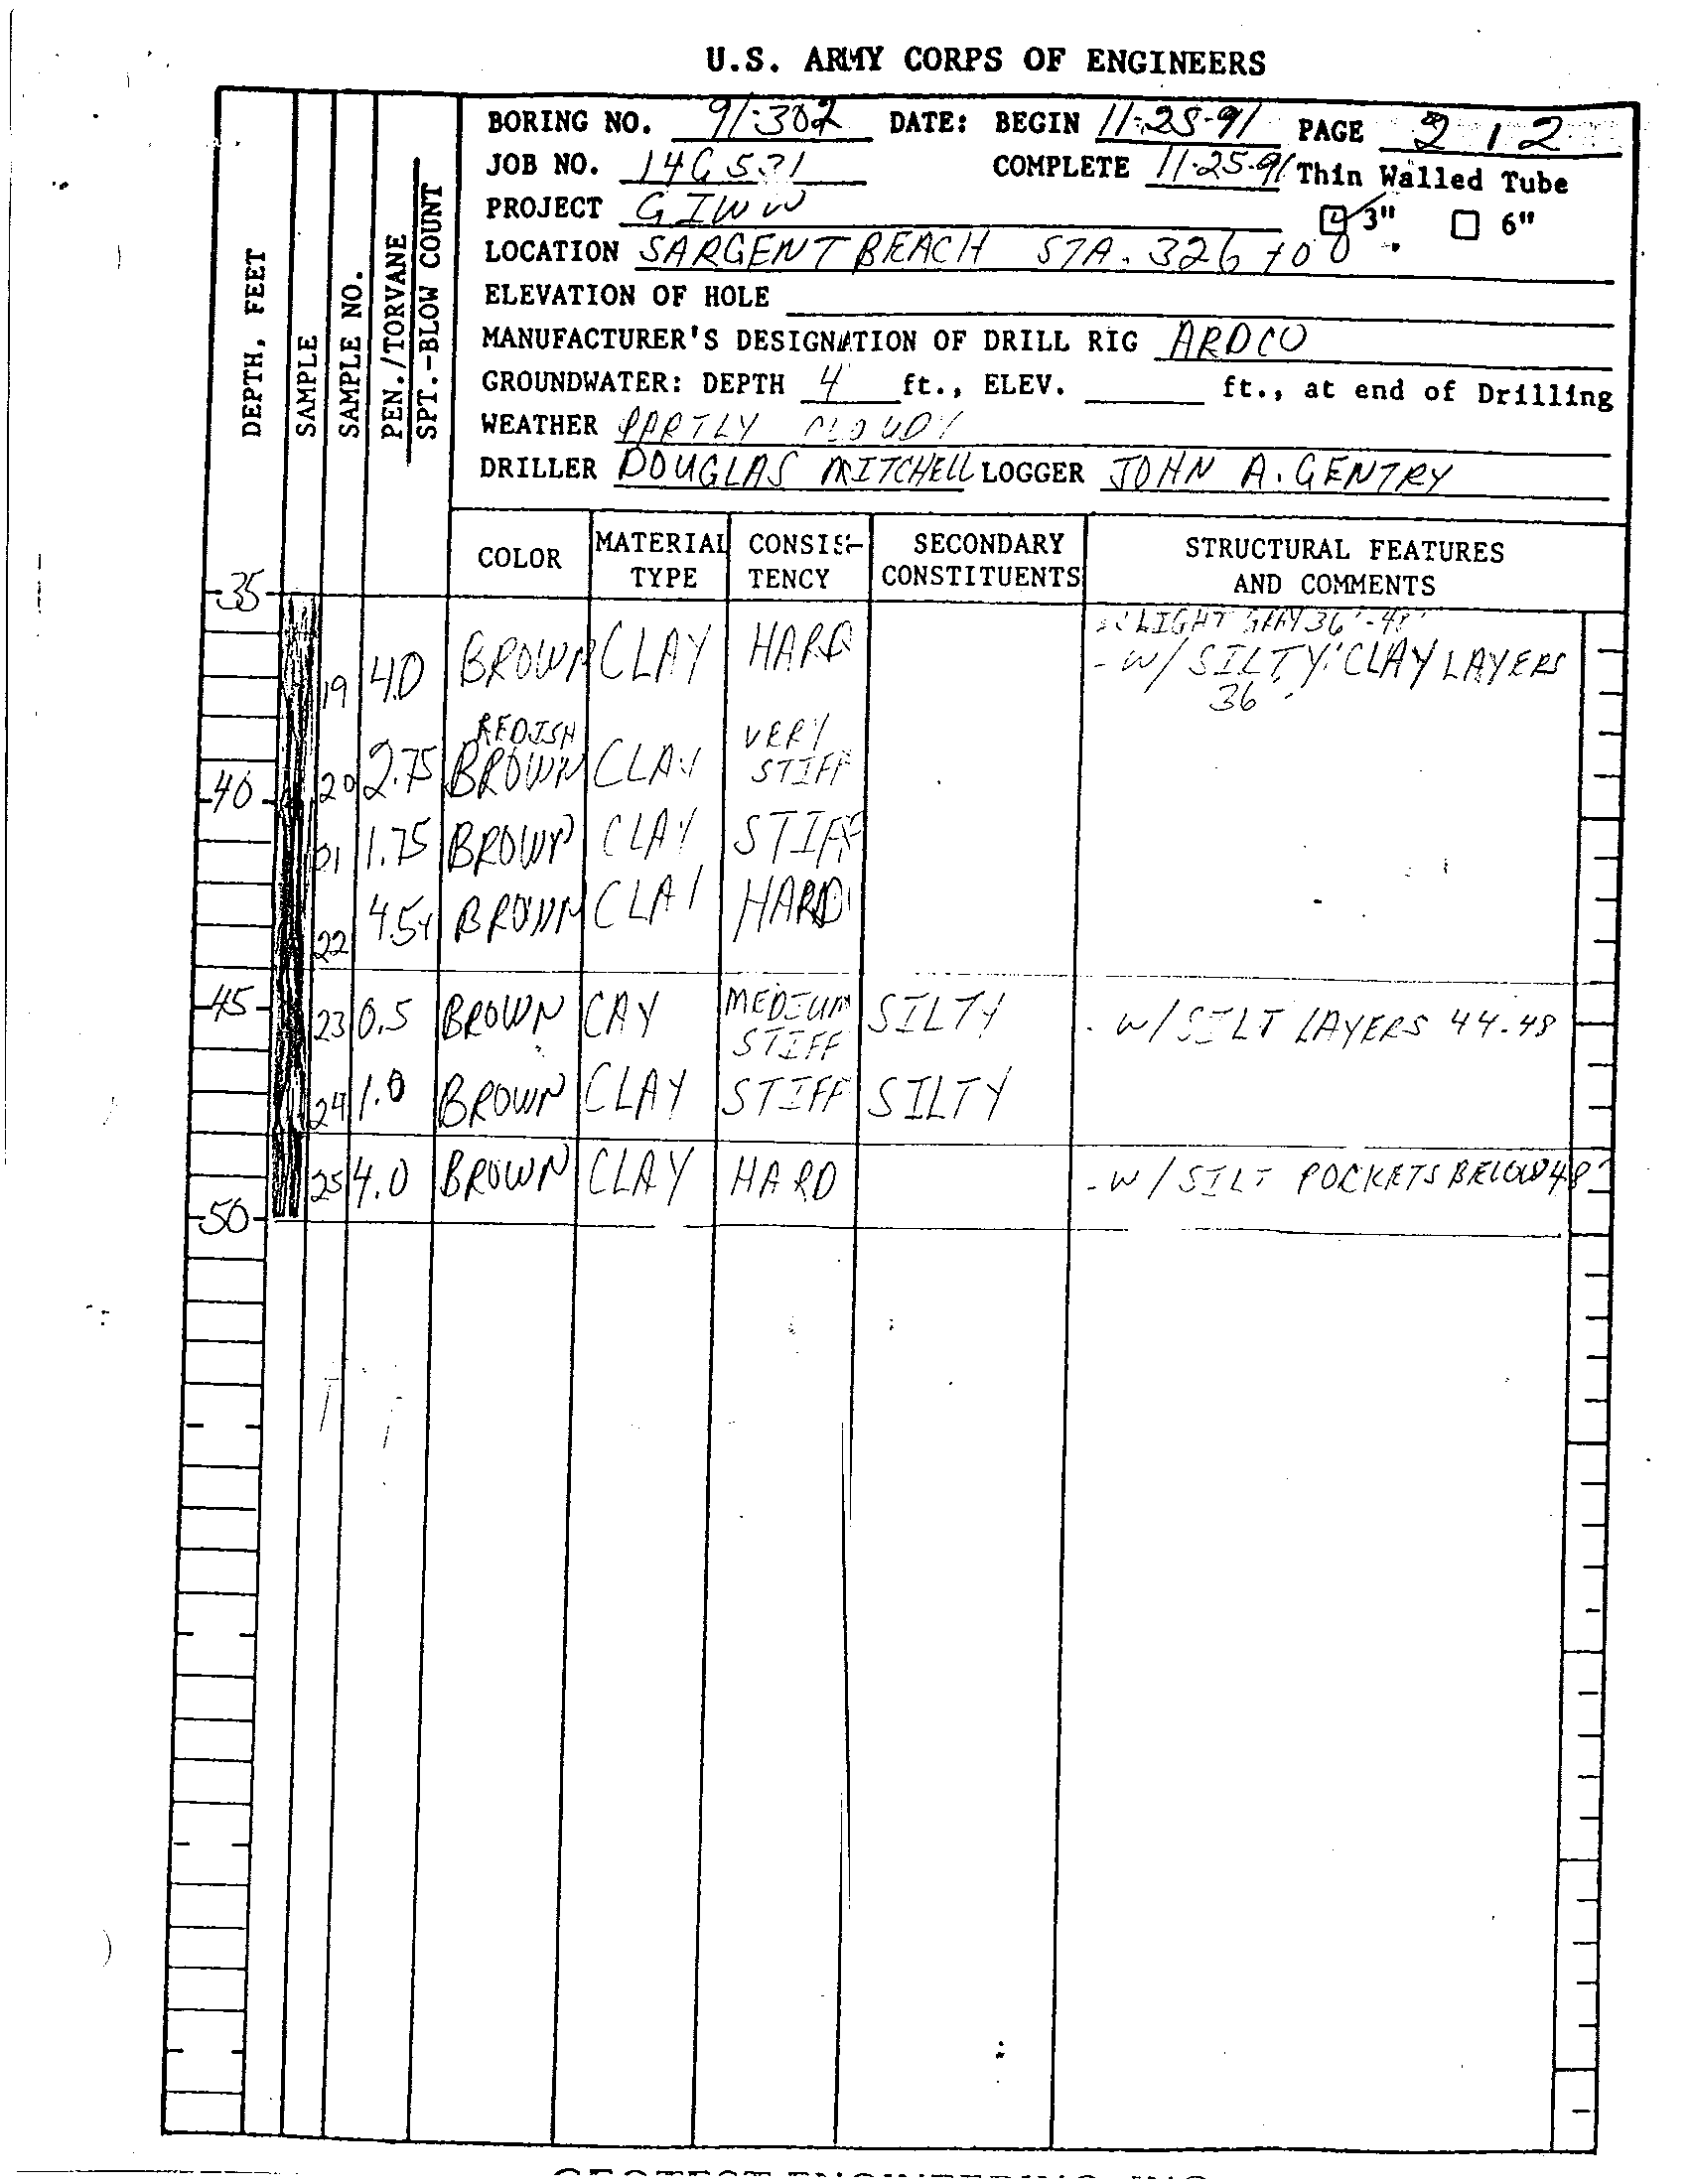 U.S. ARMY CORPS OF ENGINEERS
BORING NO. 91-302 DATE: BEGIN 11-25-91 PAGE 2 / 2
JOB NO. COMPLETE 11-25-91 Thin Walled Tube
PROJECT GIWW 3" 6"
LOCATION SARGENT BEACH STA. 326+00
ELEVATION OF HOLE
MANUFACTURER'S DESIGNATION OF DRILL RIG ARDCO
GROUNDWATER: DEPTH 4 ft., ELEV. ft., at end of Drilling
WEATHER PARTLY CLOUDY
DRILLER DOUGLAS MITCHELL LOGGER JOHN A. GENTRY
DEPTH, FEET
SAMPLE
SAMPLE NO.
PEN./TORVANE
SPT.-BLOW COUNT
COLOR MATERIAL TYPE CONSIS-TENCY SECONDARY CONSTITUENTS STRUCTURAL FEATURES AND COMMENTS
35
LIGHT GRAY 36'-
19 4.0 BROWN CLAY HARD -W/ SILTY CLAY LAYERS
36'
REDISH VERY
40 20 2.75 BROWN CLAY STIFF
21 1.75 BROWN CLAY STIFF
22 4.5+ BROWN CLAY HARD
45 23 0.5 BROWN CAY MEDIUM STIFF SILTY - W/SILT LAYERS 44-48
24 1.0 BROWN CLAY STIFF SILTY
25 4.0 BROWN CLAY HARD -W/SILT POCKETS BELOW 48'
50